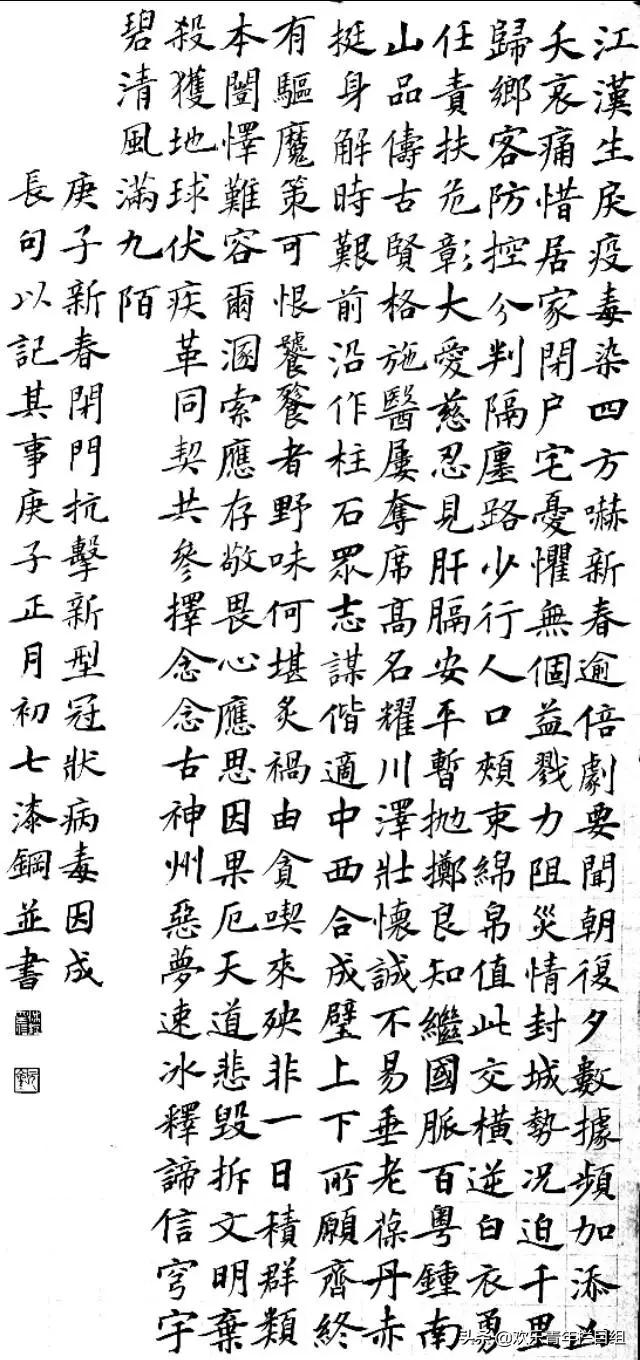 江漢生戾疫毒染四方嚇新春逾倍劇要聞朝復夕數據頻加添亾
夭哀痛惜居家閉户宅憂懼無個益戮力阻災情封城勢況迫千里
歸鄉客防控分判隔廛路少行人口頰束綿帛值此交橫逆白衣勇
任責扶危彰大愛慈忍見肝膈安平暫拋擲良知繼國脈百粵鍾南
山品儔古賢格施醫屢奪席高名耀川澤壯懷誠不易垂老葆丹赤
挺身解時艱前沿作柱石眾志謀偕適中西合成璧上下所願齊終
有驅魔策可恨饕餮者野味何堪炙禍由貪喫來殃非一日積群類
本闓懌難容爾溷索應存敬畏心應思因果厄天道悲毀拆文明棄
殺獲地球伏疾革同契共參擇念念古神州惡夢速冰釋諦信穹宇
碧清風滿九陌
庚子新春閉門抗擊新型冠狀病毒因成
長句以記其事庚子正月初七漆鋼並書
头条@欢乐青年栏目组